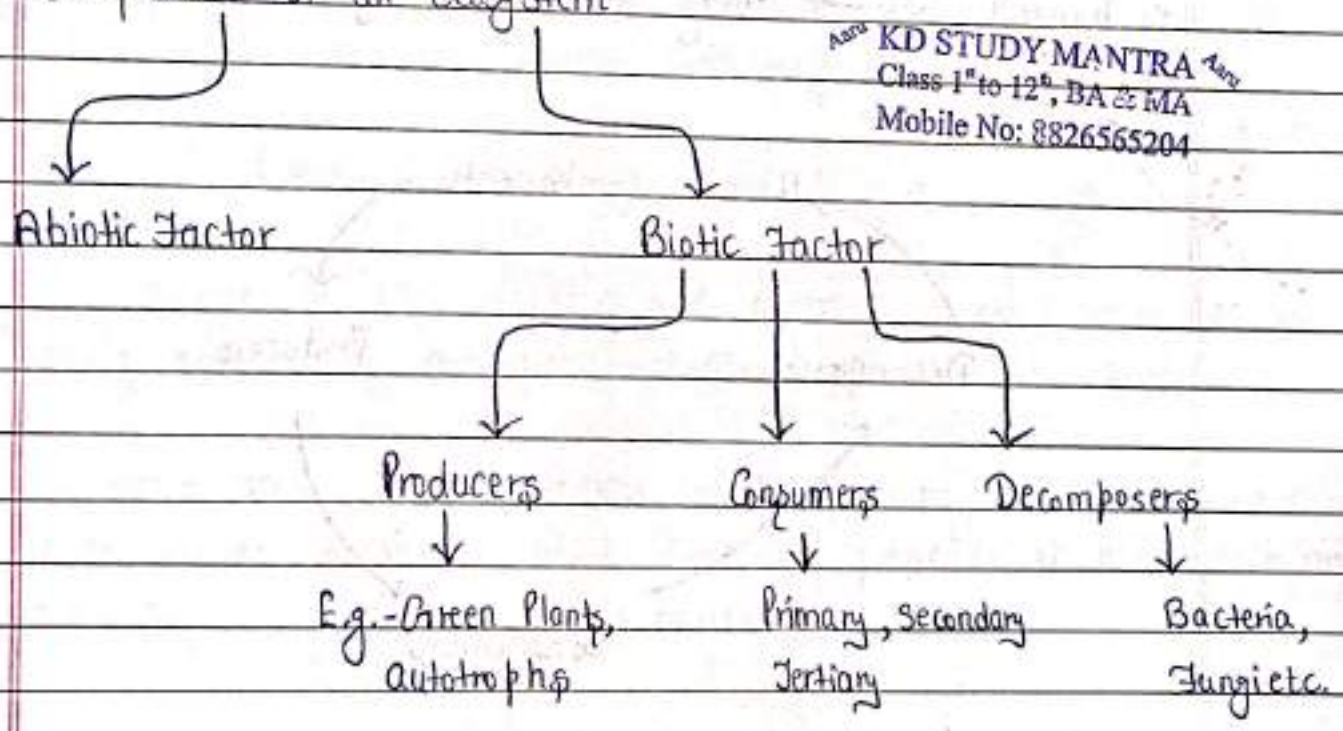 Aaru KD STUDY MANTRA Aaru
Class 1st to 12th, BA & MA
Mobile No: 8826565204
Abiotic Factor
Biotic Factor
Producers
Consumers
Decomposers
E.g.-Green Plants,
autotrophs
Primary, secondary
Tertiary
Bacteria,
Fungi etc.